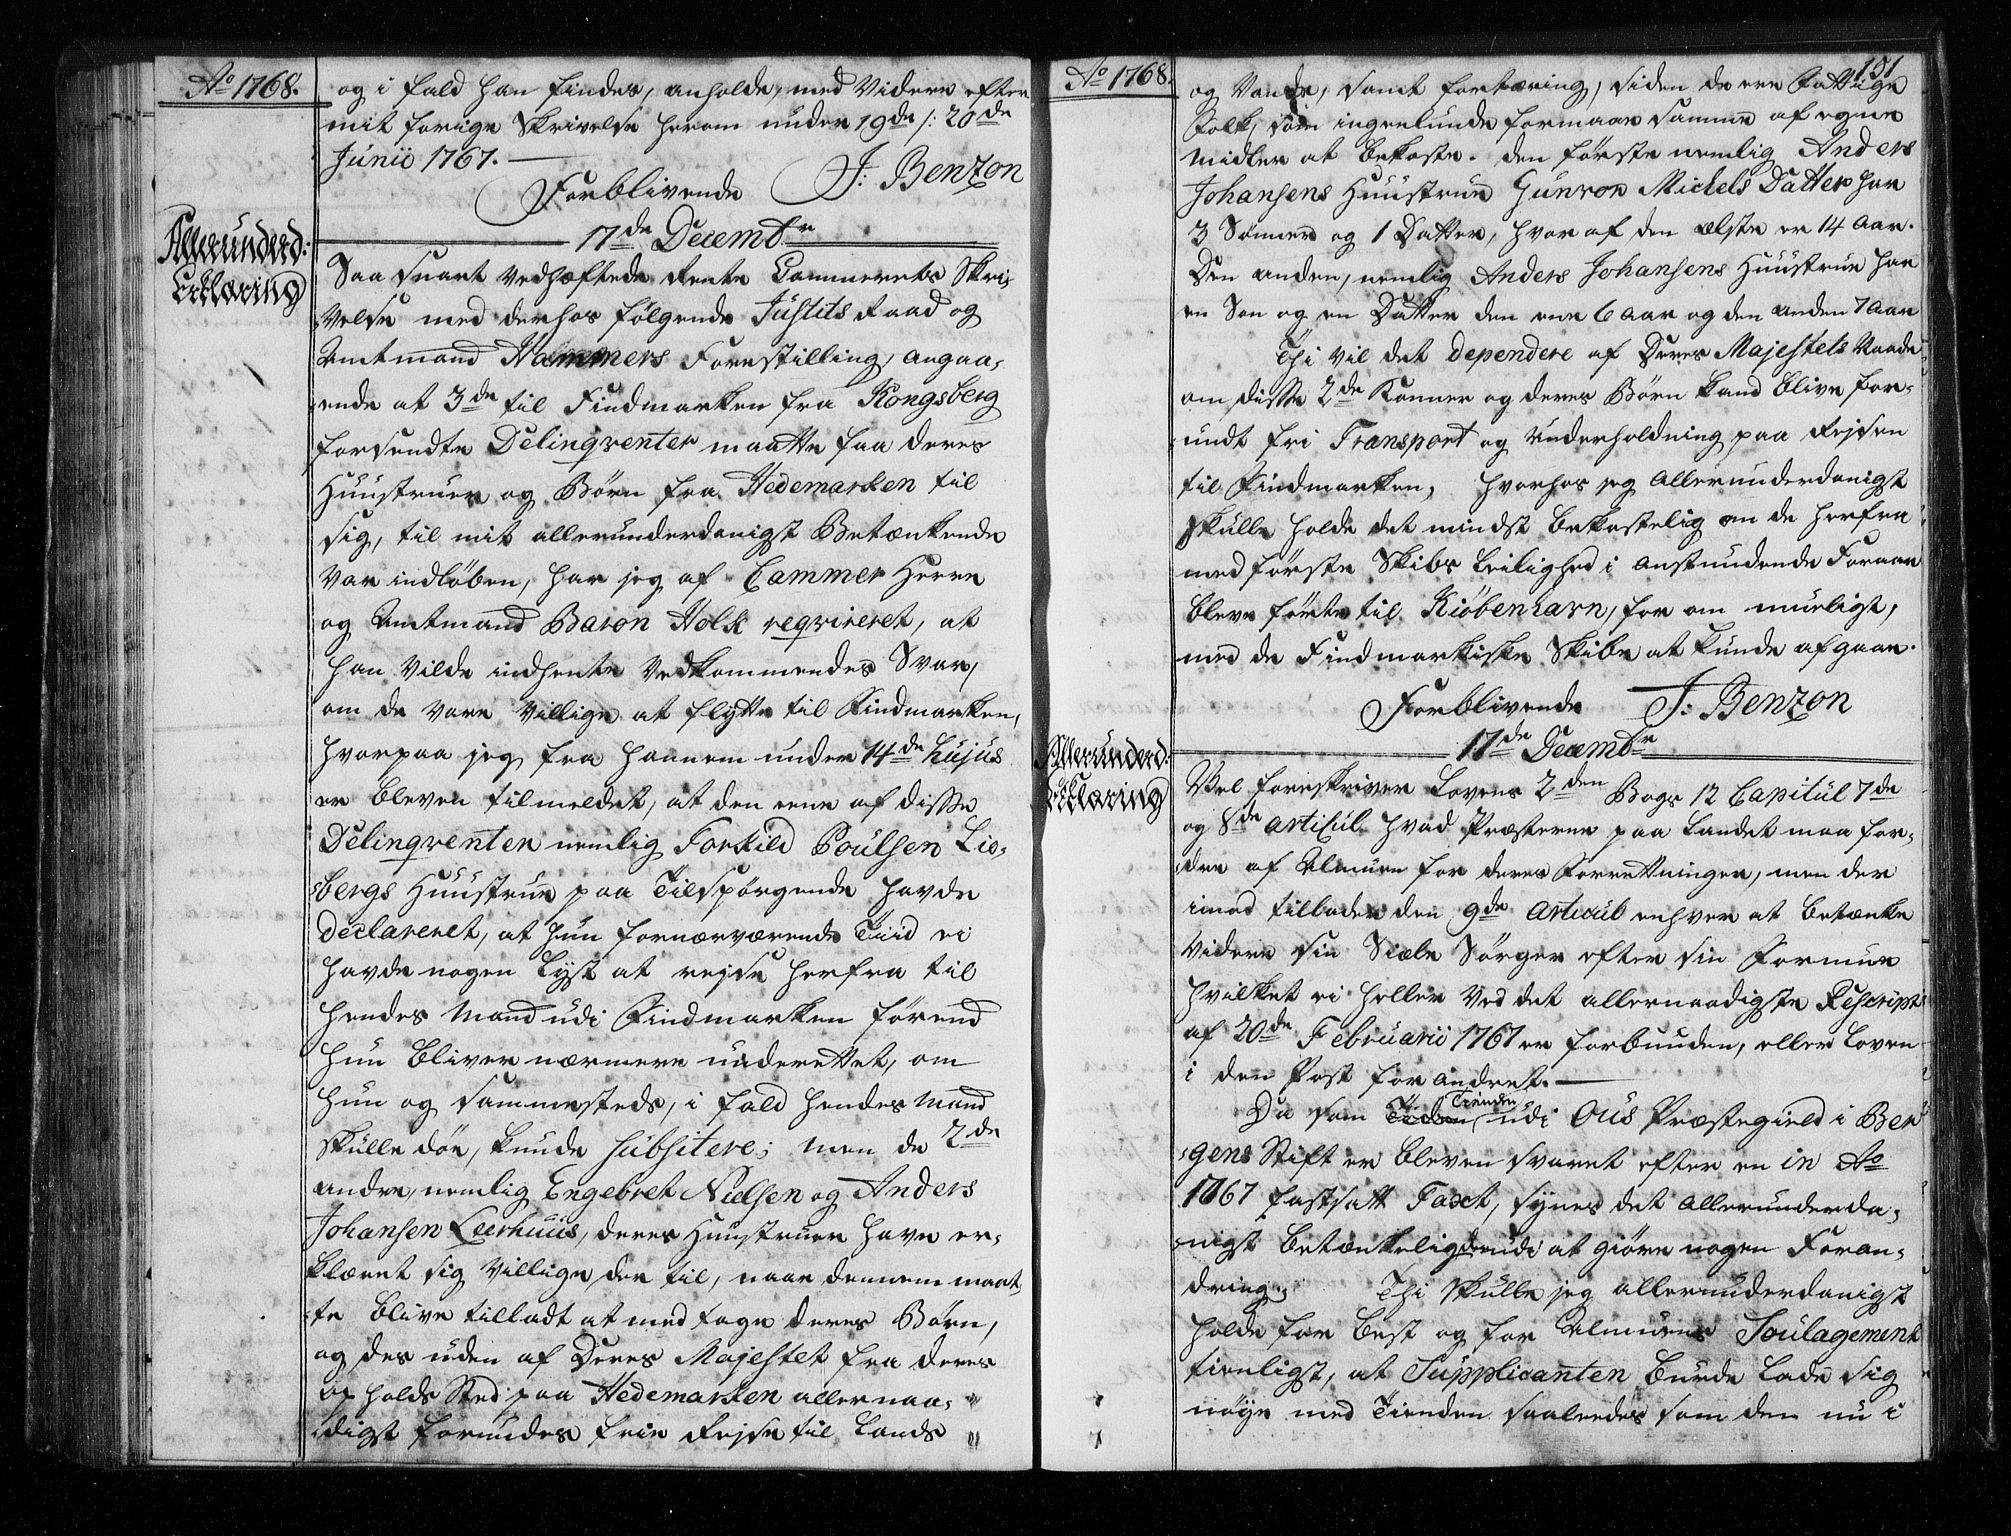 Ao 1768.
og i fald han findes, anholde, med Videre efter
mit forige Skrivelse herom under 19de /: 20de
Junii 1767.
Forblivende J: Benzon
17de Decembr
Allerunderd:
Erklæring
Saa snart vedhæftede Rente Cammerets Skri-
velse med derhos følgende Justits Raad og
Amtmand Hammers Forestilling, angaa-
ende at 3de til Findmarken fra Kongsberg
forsendte Delinqventer maatte faa deres
Huustruer og Børn fra Hedemarken til
sig, til mit allerunderdanigst Betænkende
var indløben, har jeg af Cammer Herre
og Amtmand Baron Holk reqvireret, at
han vilde indhente Vedkommendes Svar,
om de vare villige at flytte til Findmarken,
hvorpaa jeg fra hannem under 14de hujus
er bleven tilmeldet, at den eene af disse
Delinqventer nemlig Torkild Poulsen Lie-
bergs Huustrue paa Tilspørgende havde
declareret, at hun fornærværende Tiid ei
havde nogen Lyst at rejse herfra til
hendes Mand udi Findmarken førend
hun bliver nærmere underrettet, om
hun og sammesteds, i fald hendes Mand
skulle døe, kunde subsitere; men de 2de
andre, nemlig Engebret Nielsen og Anders
Johansen Leerhuus, deres Huustruer have er-
klæret sig villige der til, naar dennem maat
te blive tilladt at med tage deres Børn,
og des uden af Deres Majestet fra deres
op holds Sted paa Hedemarken allernaa-
digst forundes frie Rejse til Lands
Ao 1768.
151
og Vands, samt fortæring, siden de ere Fattige
Folk, som ingenlunde formaar samme af egne
midler at bekoste. den første nemlig Anders
Johansens Huustrue Gunvor Michels Datter har
3 Sønner og 1 Datter, hvor af den ælste er 14 Aar.
Den anden, nemlig Anders Johansens Huustrue har
en Søn og en Datter den ene 6 Aar og den anden 7 Aar
Thi vil det dependere af Deres Majestets Naade
om disse 2de Konner og deres Børn kand blive for-
undt fri Transport og Underholdning paa Rejsen
til Findmarken, hvorhos jeg Allerunderdanigst
skulle holde det mindst bekostelig om de herfra
med første Skibs Leilighed i anstundende Foraar
bleve førte til Kiøbenhavn, for om mueligt,
med de Findmarkiske Skibe at kunde afgaae.
Forblivende J: Benzon
17de Decembr
Allerunderd:
Erklæring
Vel foreskriver Lovens 2den Bogs 12 Capitul 7de
og 8de Articul hvad Præsterne paa Landet maa for-
dre af Almuen for deres Forrettninger, men der
imod tillader den 9de Articul enhver at betænke
videre sin Siæle Sørger efter sin Formue
hvilket ei heller ved det allernaadigste Rescript
af 20de Februarii 1767 er forbunden, eller Loven
i den Post forandret.
Da som Tienden udi Ous Præstegield i Ber
gens Stift er bleven svaret efter en in Ao
1767 fastsatt Taxt, synes det Allerunderda-
nigst betænkelig derudi at giøre nogen Foran-
dring; Thi skulle jeg allerunderdanigst
holde for best og for Almuens Soulagement
tienligst, at Supplicanten burde lade sig
nøye med Tienden saaledes som den nu i